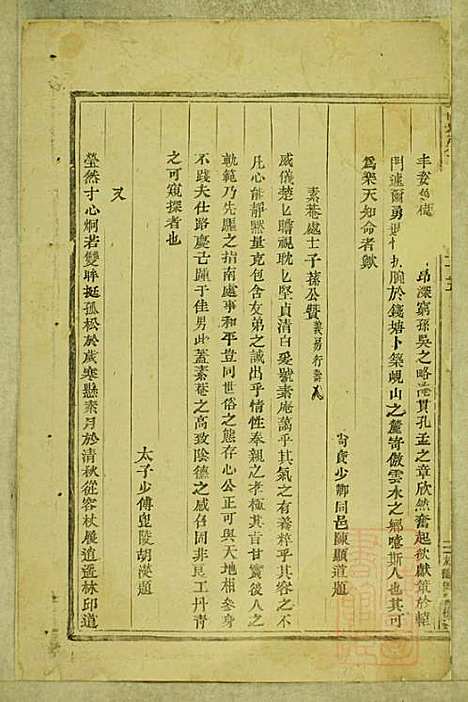 昂深窮孫吳之略淹貫孔孟之章欣然奮起欲獻策於
門遽爾勇退扼腕於錢塘卜築峴山之麓寄傲雲水之鄉噫斯人也其可
爲樂天知命者歟
尚寳少卿同邑陳顯道題
素菴處士子蓀公贊
威儀楚匕瞻視耽匕堅貞清白爰號素庵藹乎其氣之有養粹乎其言之不
凡心能靜黙量克包含友弟之誠出乎情性奉親之孝極其旨甘實後人之
軌範乃先疇之指南處事和平豈同世俗之態存心公正可與天地相參身
不踐夫仕路慶已踵于佳男此蓋素菴之高致陰德之感召固非良工丹青
之可窺探者也
太子少傅毘陵胡濙題
又
瑩然寸心炯若雙眸挺孤松於歲寒懸素月於清秋從容杖履逍遥林邱道